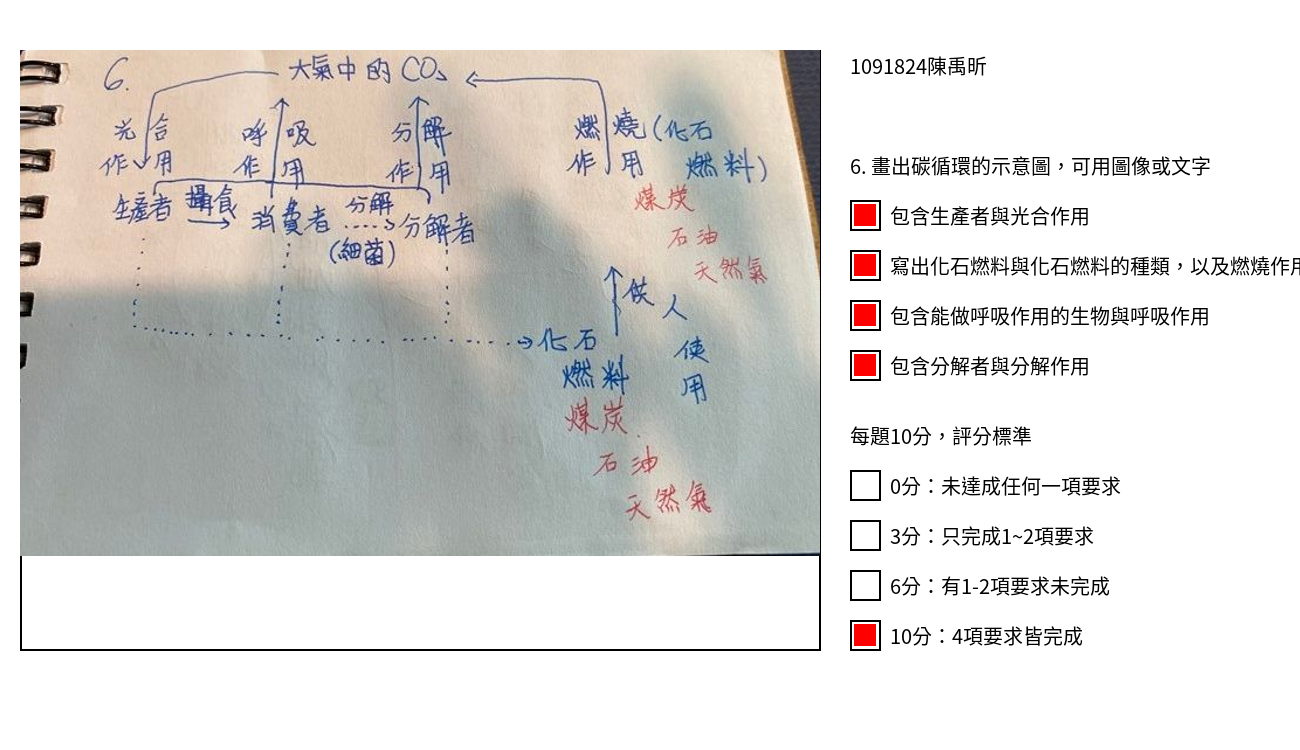 6.
大氣中的 CO₂
光合作用
呼吸作用
分解作用
燃燒作用（化石燃料）
煤炭
石油
天然氣
生產者 攝食 消費者 分解 分解者
（細菌）
供人使用
化石燃料
煤炭
石油
天然氣
1091824陳禹昕
6. 畫出碳循環的示意圖，可用圖像或文字
包含生產者與光合作用
寫出化石燃料與化石燃料的種類，以及燃燒作用
包含能做呼吸作用的生物與呼吸作用
包含分解者與分解作用
每題10分，評分標準
0分：未達成任何一項要求
3分：只完成1~2項要求
6分：有1-2項要求未完成
10分：4項要求皆完成